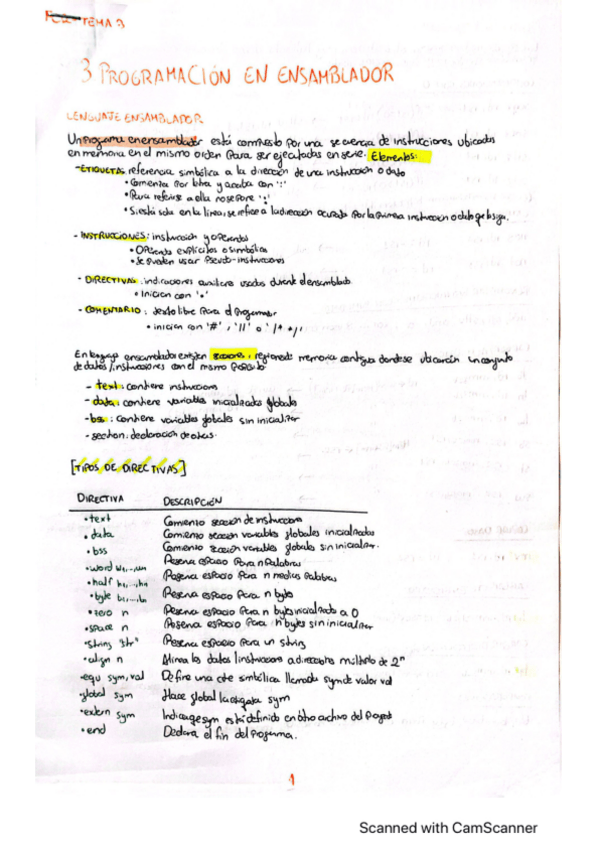 TEMA 3
3 PROGRAMACIÓN EN ENSAMBLADOR
LENGUAJE ENSAMBLADOR
Un programa en ensamblador está compuesto por una secuencia de instrucciones ubicadas
en memoria en el mismo orden para ser ejecutadas en serie. Elementos:
- ETIQUETAS: referencia simbólica a la dirección de una instrucción o dato
• Comienza por letra y acaba con ':'
• Para referirse a ella no se pone ':'
• Si está sola en la línea, se refiere a la dirección ocupada por la primera instrucción o dato que la siga.
- INSTRUCCIONES: instrucción y operandos
• Operando explícitos o simbólica
• Se pueden usar pseudo-instrucciones
- DIRECTIVAS: indicaciones auxiliares usadas durante el ensamblado
• Inician con '.'
- COMENTARIO: texto libre para el programador
• inician con '#', '//' o '/* */'
En lenguaje ensamblador existen secciones, regiones de memoria contigua donde se ubicarán un conjunto
de datos/instrucciones con el mismo propósito
- text: contiene instrucciones
- data: contiene variables inicializadas globales
- bss: contiene variables globales sin inicializar
- section: declaración de otras.
[TIPOS DE DIRECTIVAS]
DIRECTIVA DESCRIPCIÓN
•text Comienzo sección de instrucciones
•data Comienzo sección variables globales inicializadas
•bss Comienzo sección variables globales sin inicializar.
•word w1,...,wn Reserva espacio para n palabras
•half h1,...,hn Reserva espacio para n medias palabras
•byte b1,...,bn Reserva espacio para n byte
•zero n Reserva espacio para n bytes inicializado a 0
•space n Reserva espacio para n bytes sin inicializar
•string "str" Reserva espacio para un string
•align n Alinea los datos/instrucciones a direcciones múltiplo de 2ⁿ
•equ sym, val Define una cte simbólica llamada sym de valor val
•global sym Hace global la etiqueta sym
•extern sym Indica que sym está definido en otro archivo del proyecto
•end Declara el fin del programa.
1
Scanned with CamScanner